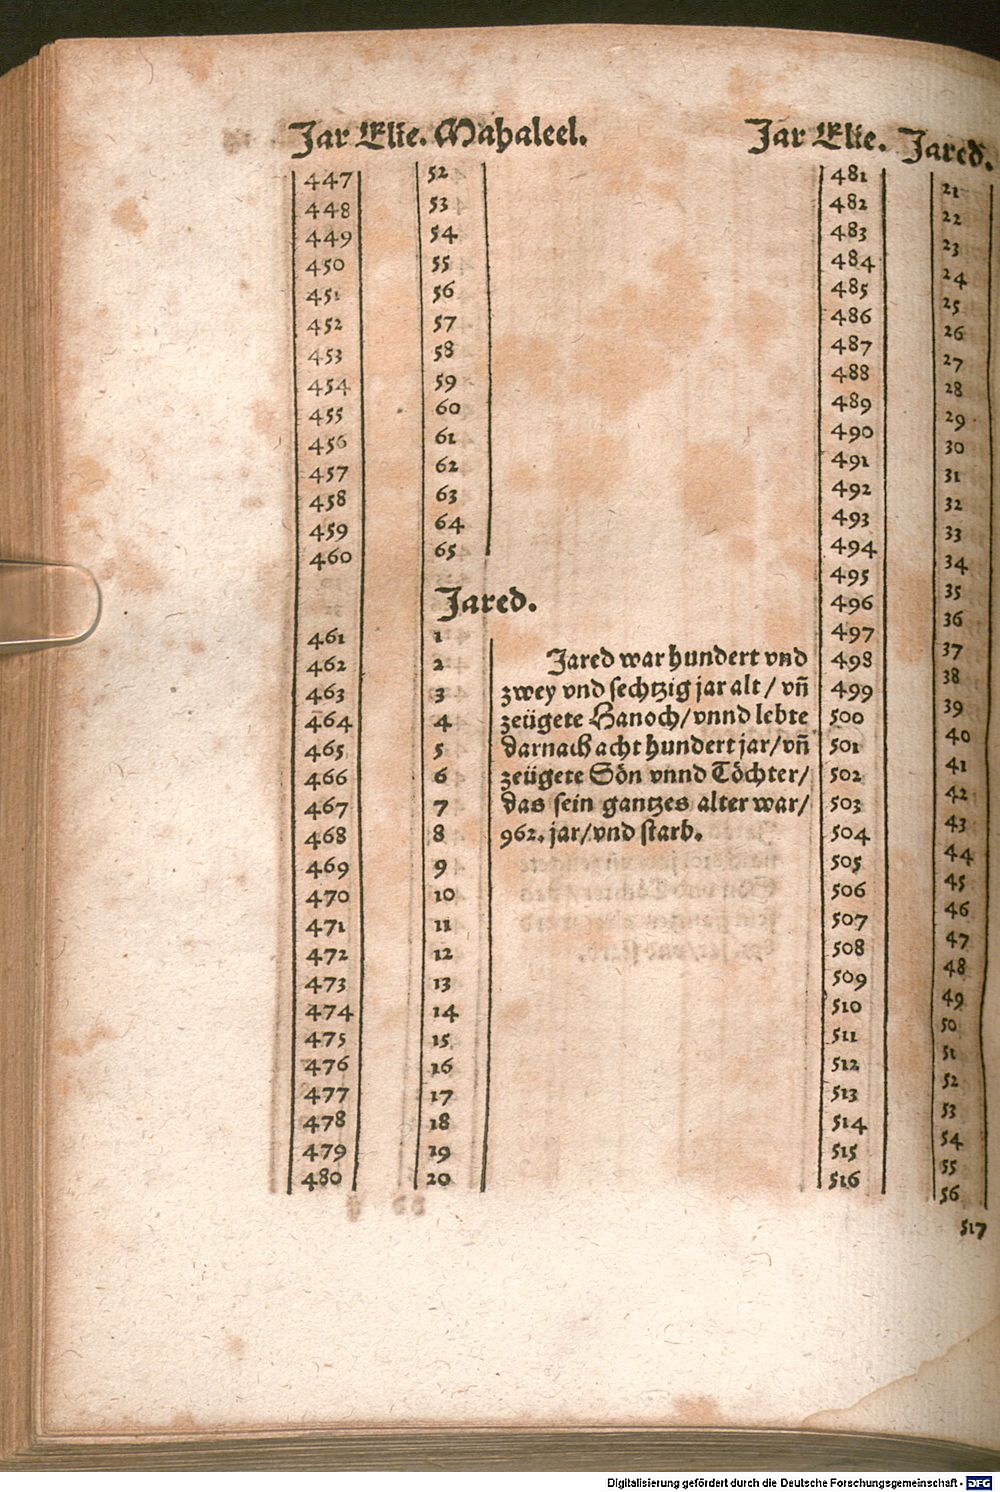 Jar Elie. Mahaleel.
447 52
448 53
449 54
450 55
451 56
452 57
453 58
454 59
455 60
456 61
457 62
458 63
459 64
460 65
Jared.
461 1
462 2
463 3
464 4
465 5
466 6
467 7
468 8
469 9
470 10
471 11
472 12
473 13
474 14
475 15
476 16
477 17
478 18
479 19
480 20
Jared war hundert vnd
zwey vnd sechtzig jar alt / vñ
zeügete Hanoch/vnnd lebte
darnach acht hundert jar/vñ
zeügete Sön vnnd Töchter/
das sein gantzes alter war/
962. jar/vnd starb.
Jar Elie. Jared.
481 21
482 22
483 23
484 24
485 25
486 26
487 27
488 28
489 29
490 30
491 31
492 32
493 33
494 34
495 35
496 36
497 37
498 38
499 39
500 40
501 41
502 42
503 43
504 44
505 45
506 46
507 47
508 48
509 49
510 50
511 51
512 52
513 53
514 54
515 55
516 56
517
Digitalisierung gefördert durch die Deutsche Forschungsgemeinschaft - DFG